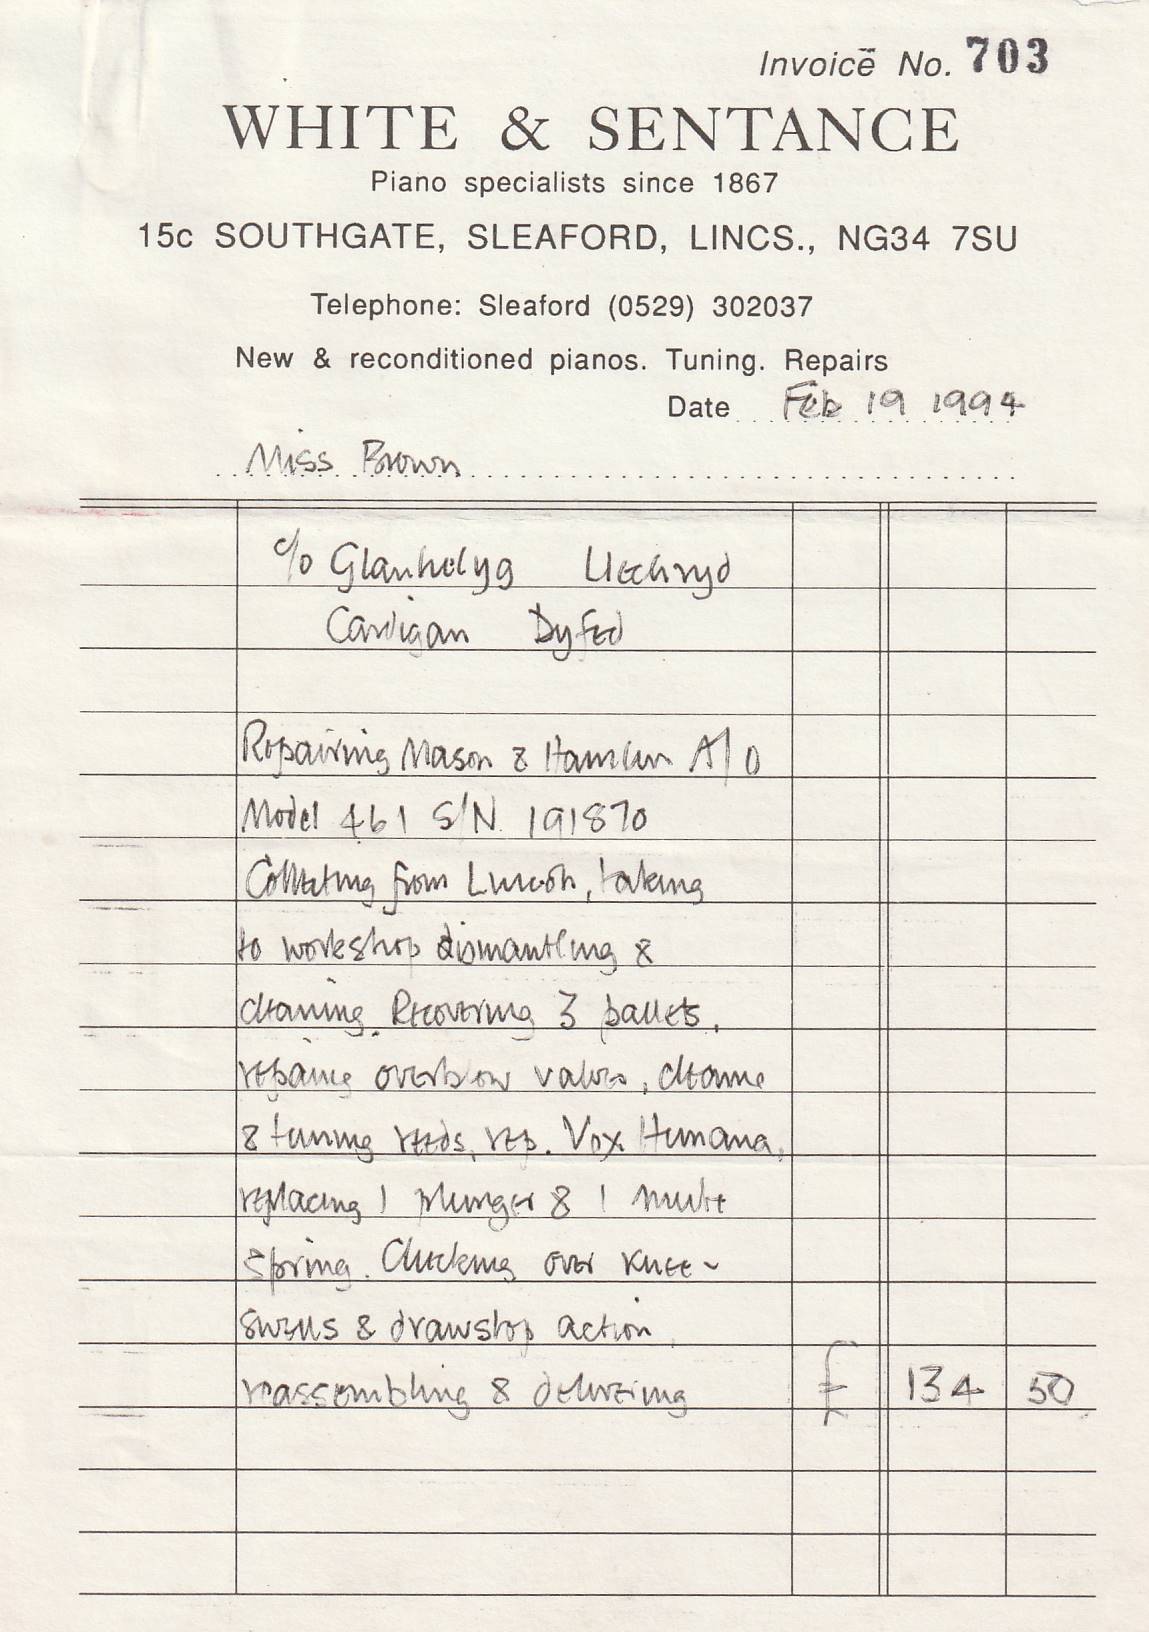 Invoice No. 703
WHITE & SENTANCE
Piano specialists since 1867
15c SOUTHGATE, SLEAFORD, LINCS., NG34 7SU
Telephone: Sleaford (0529) 302037
New & reconditioned pianos. Tuning. Repairs
Date Feb 19 1994
Miss Brown
c/o Glanhelyg Llechryd
Cardigan Dyfed
Repairing Mason & Hamlin A/O
Model 461 S/N 191870
Collecting from Lincoln, taking
to workshop dismantling &
cleaning. Recovering 3 pallets,
repairing overblow valves, cleaning
& tuning reeds, rep. Vox Humana,
replacing 1 plunger & 1 mute
spring. Checking over knee-
swells & drawstop action,
reassembling & delivering £ 134 50